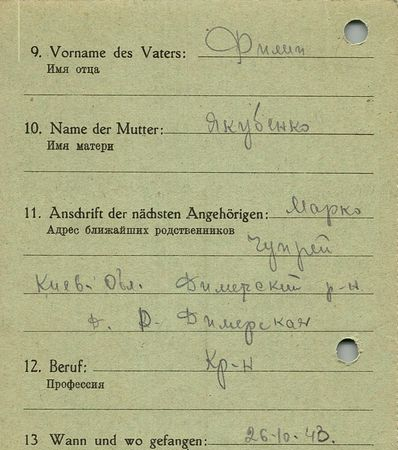 9. Vorname des Vaters: Филип
Имя отца
10. Name der Mutter: Якубенко
Имя матери
11. Anschrift der nächsten Angehörigen: Марко
Адрес ближайших родственников
Чупрей
Киев. Обл. Димерский р-н
Д. Димерская
12. Beruf: Кр-н
Профессия
13 Wann und wo gefangen: 26.10.43.